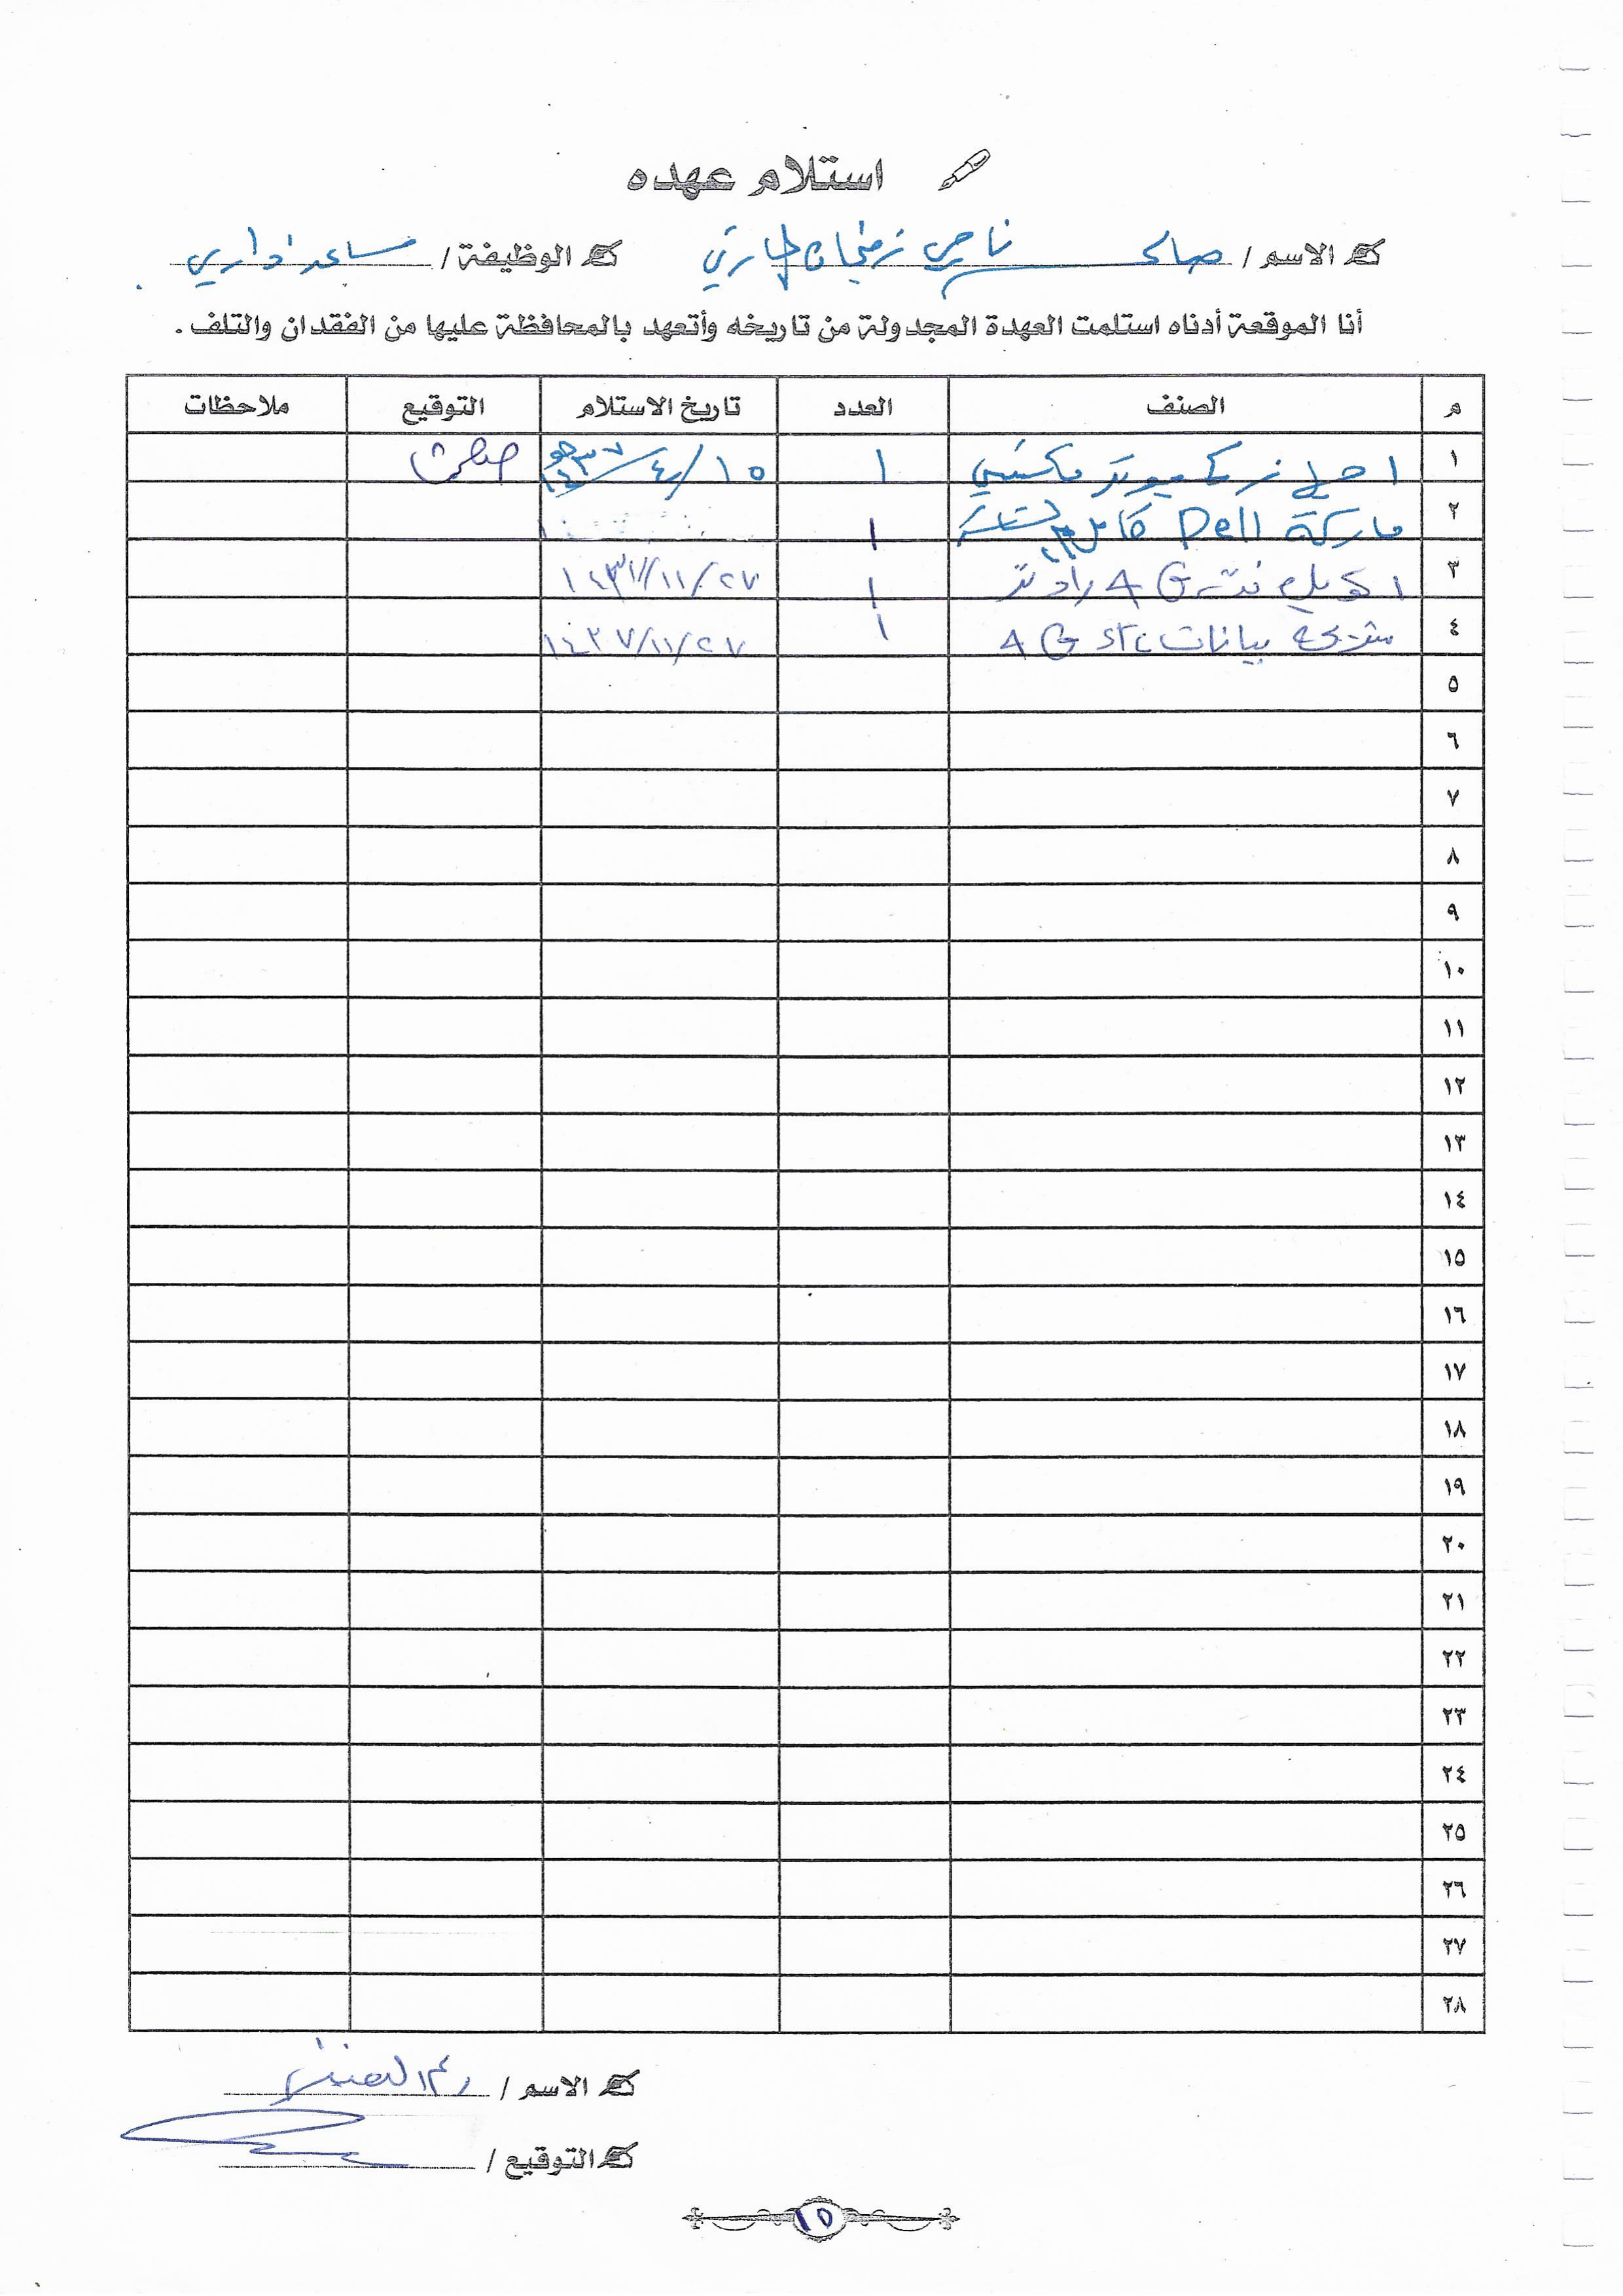 استلام عهده
الاسم / صالح ناجي الحارثي الوظيفة / مساعد إداري
أنا الموقعة أدناه استلمت العهدة المجدولة من تاريخه وأتعهد بالمحافظة عليها من الفقدان والتلف .
م الصنف العدد تاريخ الاستلام التوقيع ملاحظات
١ كمبيوتر مكتبي ١ ١٥/٤/١٤٣٧هـ
٢ ماركة Dell كامل ١
٣ 4G ١ ١٤٣٧/١١/٢٧
٤ شريحة بيانات stc 4G ١ ١٤٣٧/١١/٢٧
٥
٦
٧
٨
٩
١٠
١١
١٢
١٣
١٤
١٥
١٦
١٧
١٨
١٩
٢٠
٢١
٢٢
٢٣
٢٤
٢٥
٢٦
٢٧
٢٨
الاسم /
التوقيع /
١٥